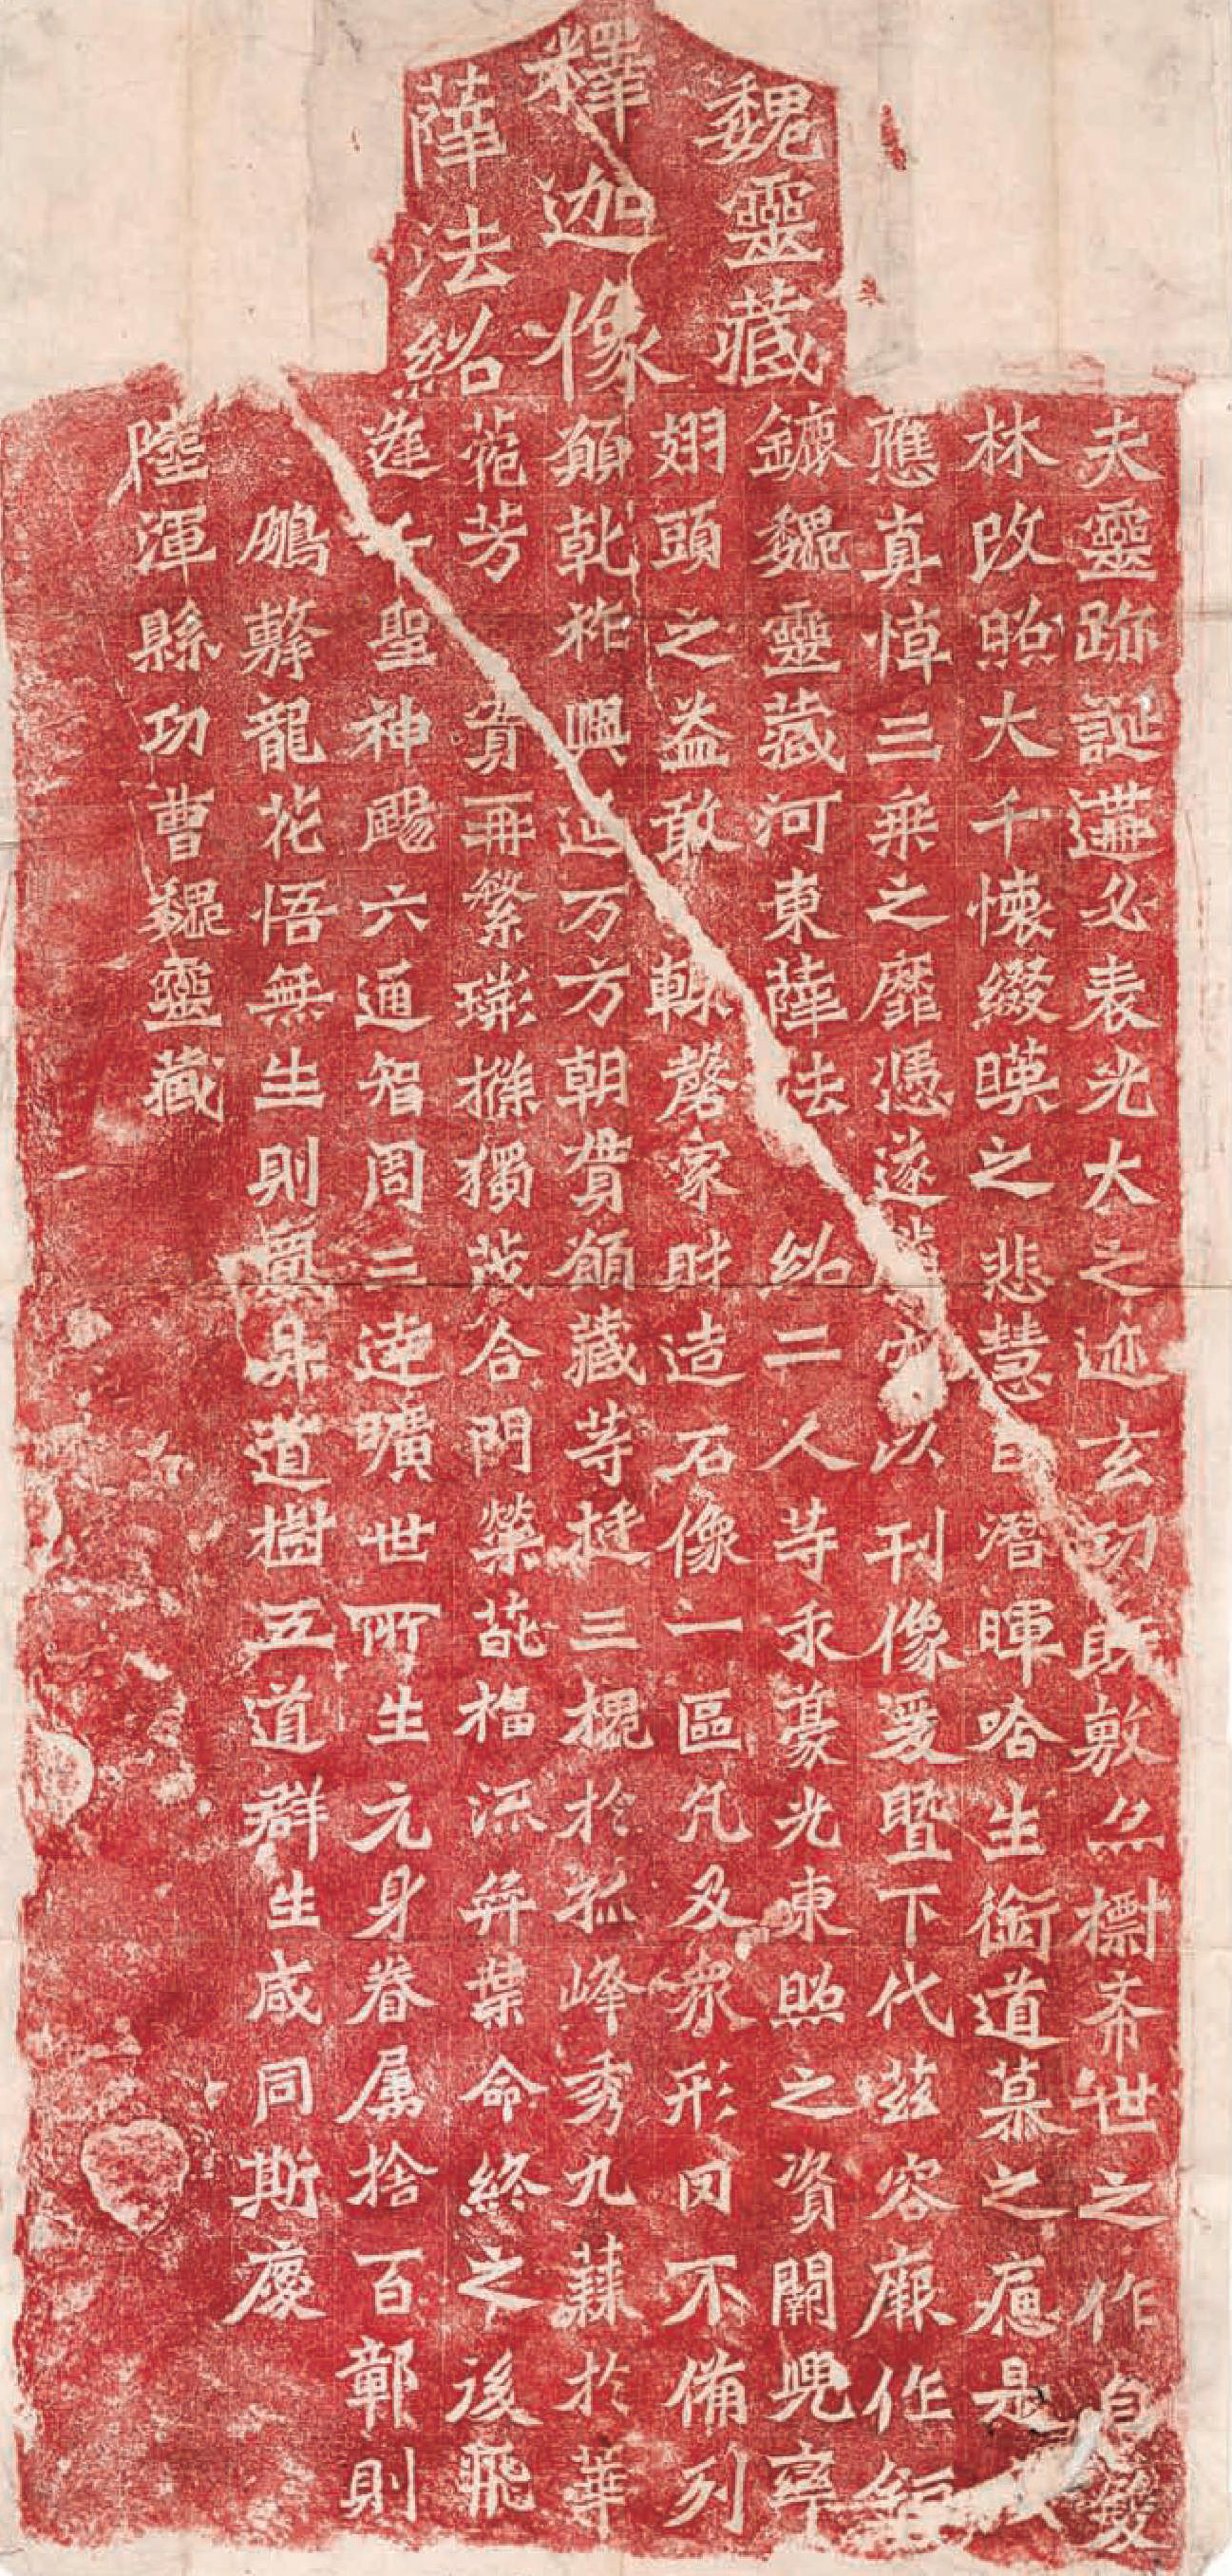 魏靈藏
釋迦像
薛法紹
夫靈跡誕遘必表光大之迹玄功既敷亦摽希世之作自雙
林改照大千懷綴暎之悲慧日潛暉唅生銜道慕之痛是以
應真悼三乘之靡憑遂騰空以刊像爰暨下代茲容厥作鉅
鏕魏靈藏河東薛法紹二人等求豪光東照之資闕兜率
翅頭之益敢輒罄家財造石像一區凡及衆形罔不備列
願乾祚興延万方朝貫願藏等挺三槐於孤峰秀九蕀於華
菀芳實再繁荊條獨茂合門榮葩福流弈葉命終之後飛
逢千聖神颺六通智周三達曠世所生元身眷屬捨百鄣則
鵬擊龍花悟無生則昇道樹五道群生咸同斯慶
陸渾縣功曹魏靈藏